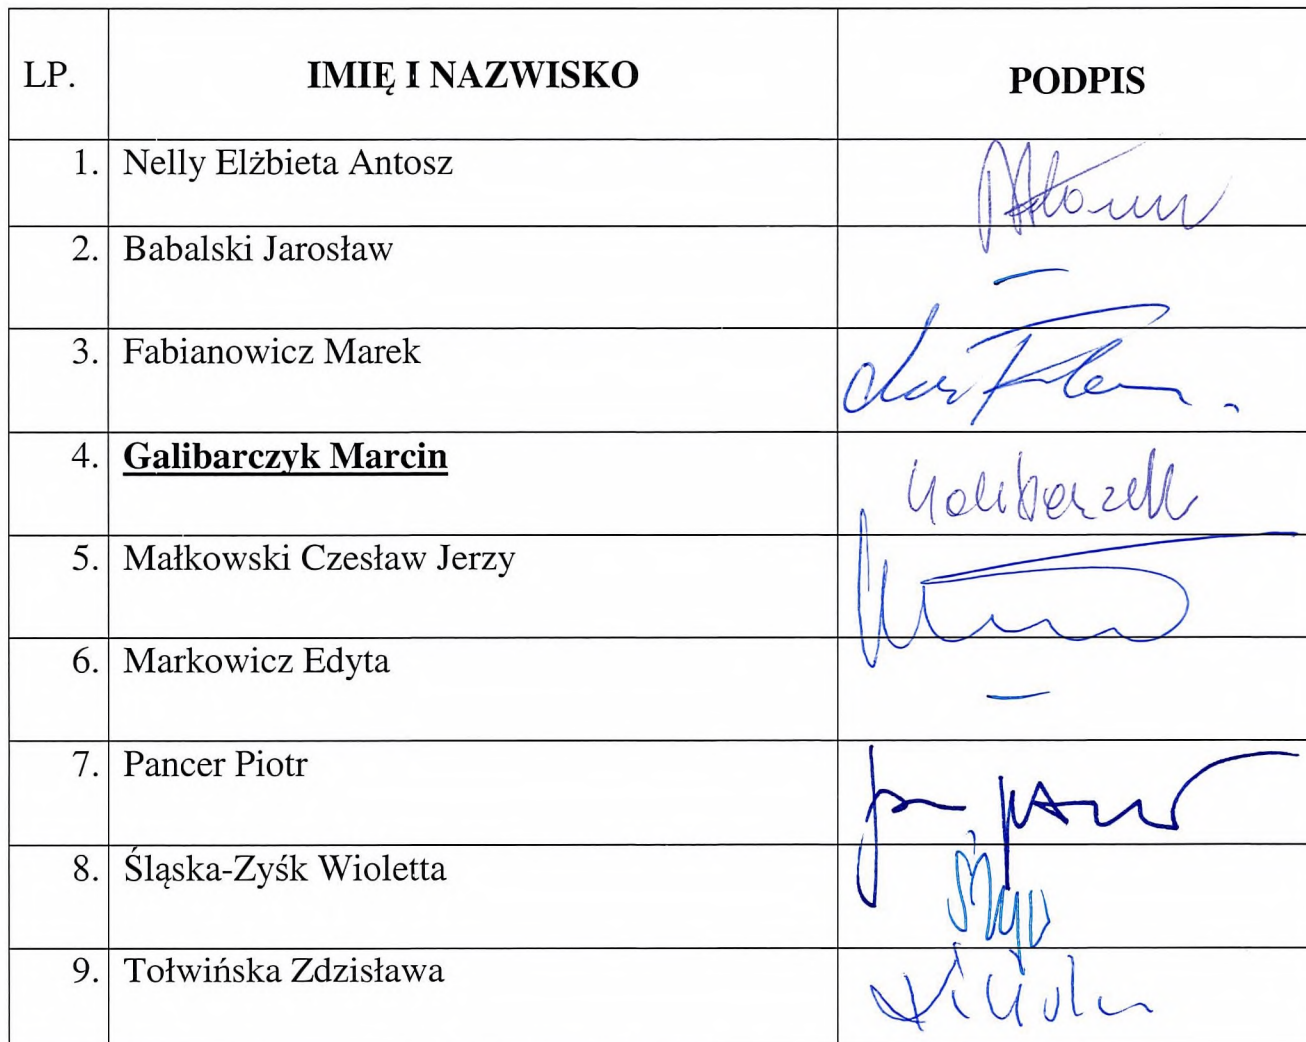 LP. IMIĘ I NAZWISKO PODPIS
1. Nelly Elżbieta Antosz
2. Babalski Jarosław –
3. Fabianowicz Marek
4. Galibarczyk Marcin
5. Małkowski Czesław Jerzy
6. Markowicz Edyta –
7. Pancer Piotr
8. Śląska-Zyśk Wioletta
9. Tołwińska Zdzisława